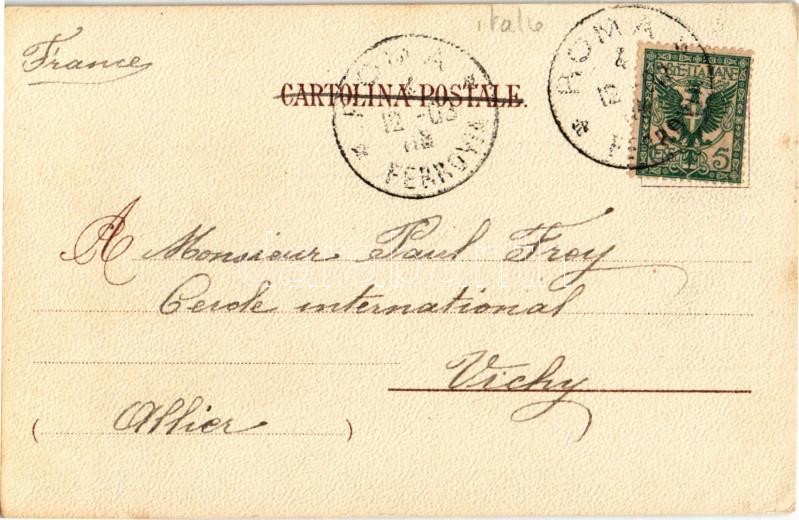 italie
France
CARTOLINA POSTALE.
ROMA
4
12 -03
FERROVIA
ROMA
4
12
POSTE ITALIANE
CENT. 5
A Monsieur Paul Frey
Cercle international
Vichy
(Allier)